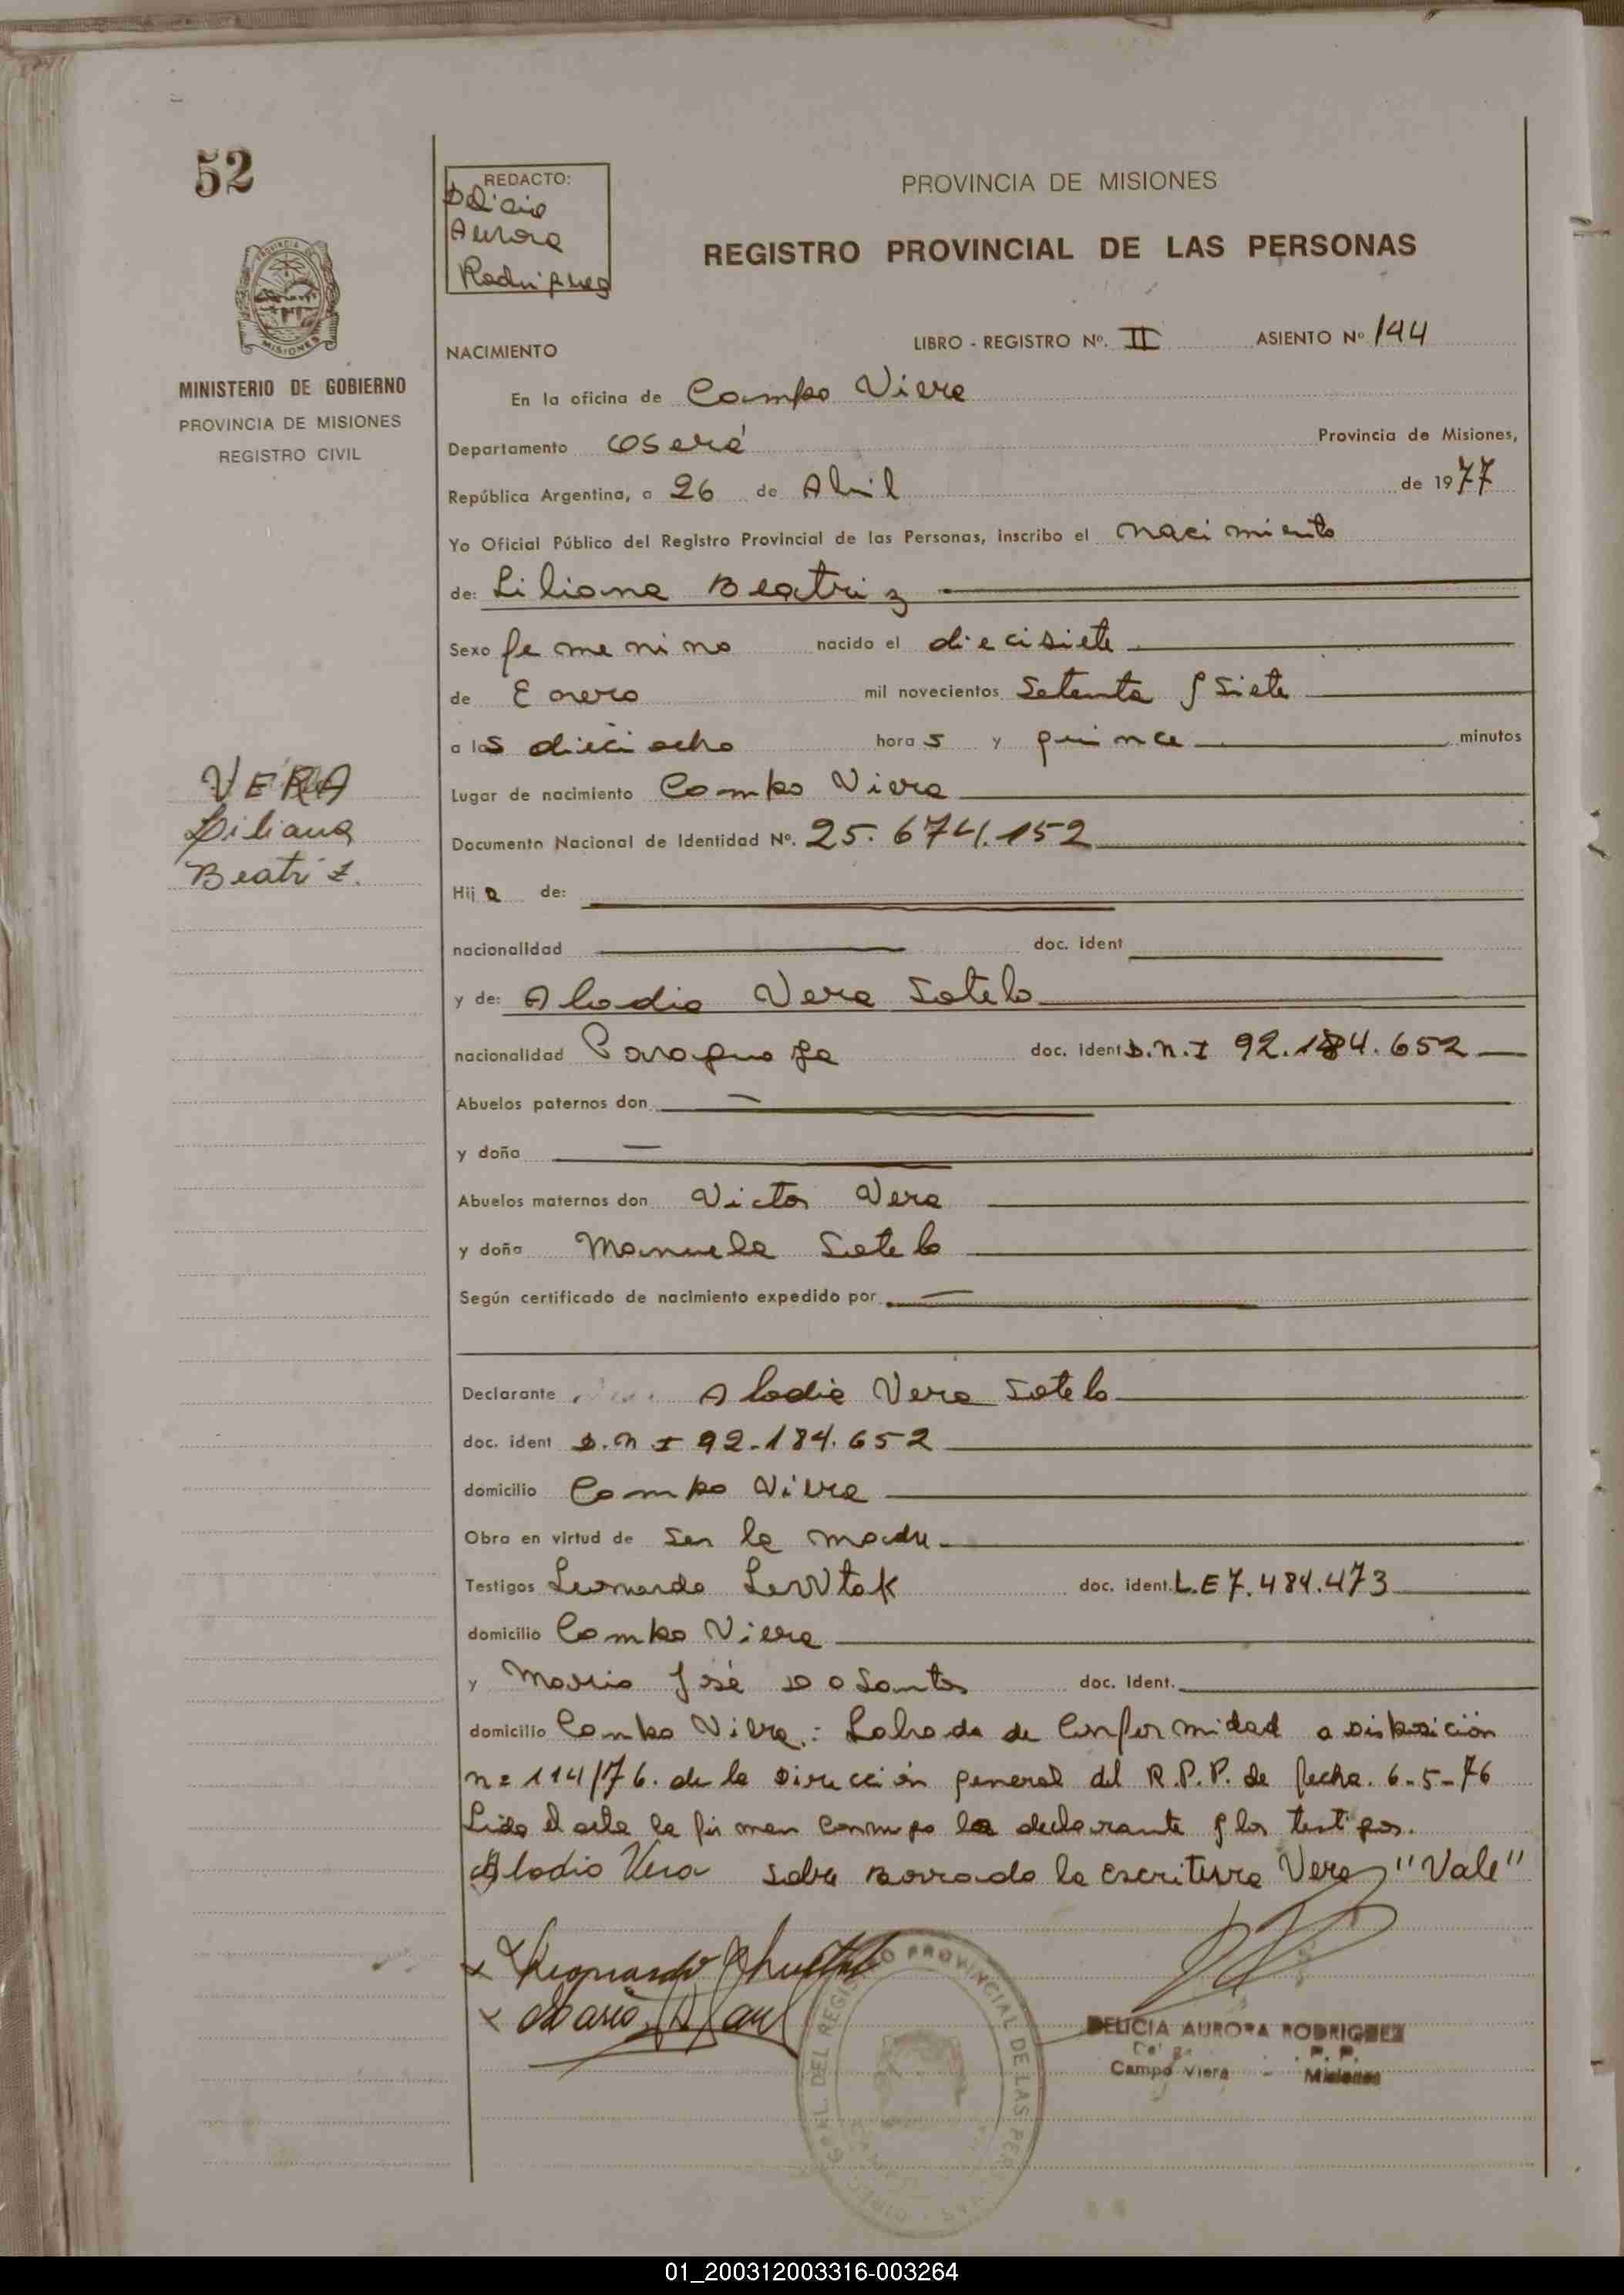 52
REDACTO:
Delicia
Aurora
Rodriguez
PROVINCIA DE MISIONES
REGISTRO PROVINCIAL DE LAS PERSONAS
MISIONES
MINISTERIO DE GOBIERNO
PROVINCIA DE MISIONES
REGISTRO CIVIL
NACIMIENTO LIBRO - REGISTRO Nº. II ASIENTO Nº 144
En la oficina de Campo Viera
Departamento Oberá Provincia de Misiones,
República Argentina, a 26 de Abril de 1977
Yo Oficial Público del Registro Provincial de las Personas, inscribo el nacimiento
de: Liliana Beatriz
Sexo femenino nacido el diecisiete
de Enero mil novecientos Setenta y Siete
a las dieciocho horas y quince minutos
VERA
Liliana
Beatriz.
Lugar de nacimiento Campo Viera
Documento Nacional de Identidad Nº. 25.674.152
Hija de:
nacionalidad doc. ident
y de: Alodia Vera Sotelo
nacionalidad Paraguaya doc. ident D.N.I 92.184.652
Abuelos paternos don
y doña
Abuelos maternos don Victor Vera
y doña Manuela Sotelo
Según certificado de nacimiento expedido por
Declarante Alodia Vera Sotelo
doc. ident D.N I 92.184.652
domicilio Campo Viera
Obra en virtud de Ser la madre
Testigos Leonardo doc. ident. L.E 7.484.473
domicilio Campo Viera
y Mario José Do Santos doc. Ident.
domicilio Campo Viera.: Labrada de Conformidad a Disposición
nº 114/76. de la Dirección general del R.P.P. de fecha. 6-5-76
Leida el acta la firman conmigo la declarante y los testigos.
Alodia Vera Sobre Borrado la escritura Vera "Vale"
x Leonardo
x Mario
DELICIA AURORA RODRIGUEZ
Campo Viera - Misiones
REGISTRO PROVINCIAL DE LAS PERSONAS
01_200312003316-003264